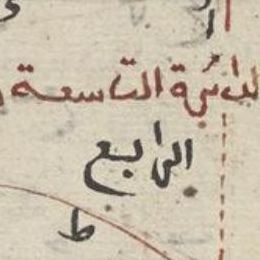 الدائرة التاسعة
الرابع
ط